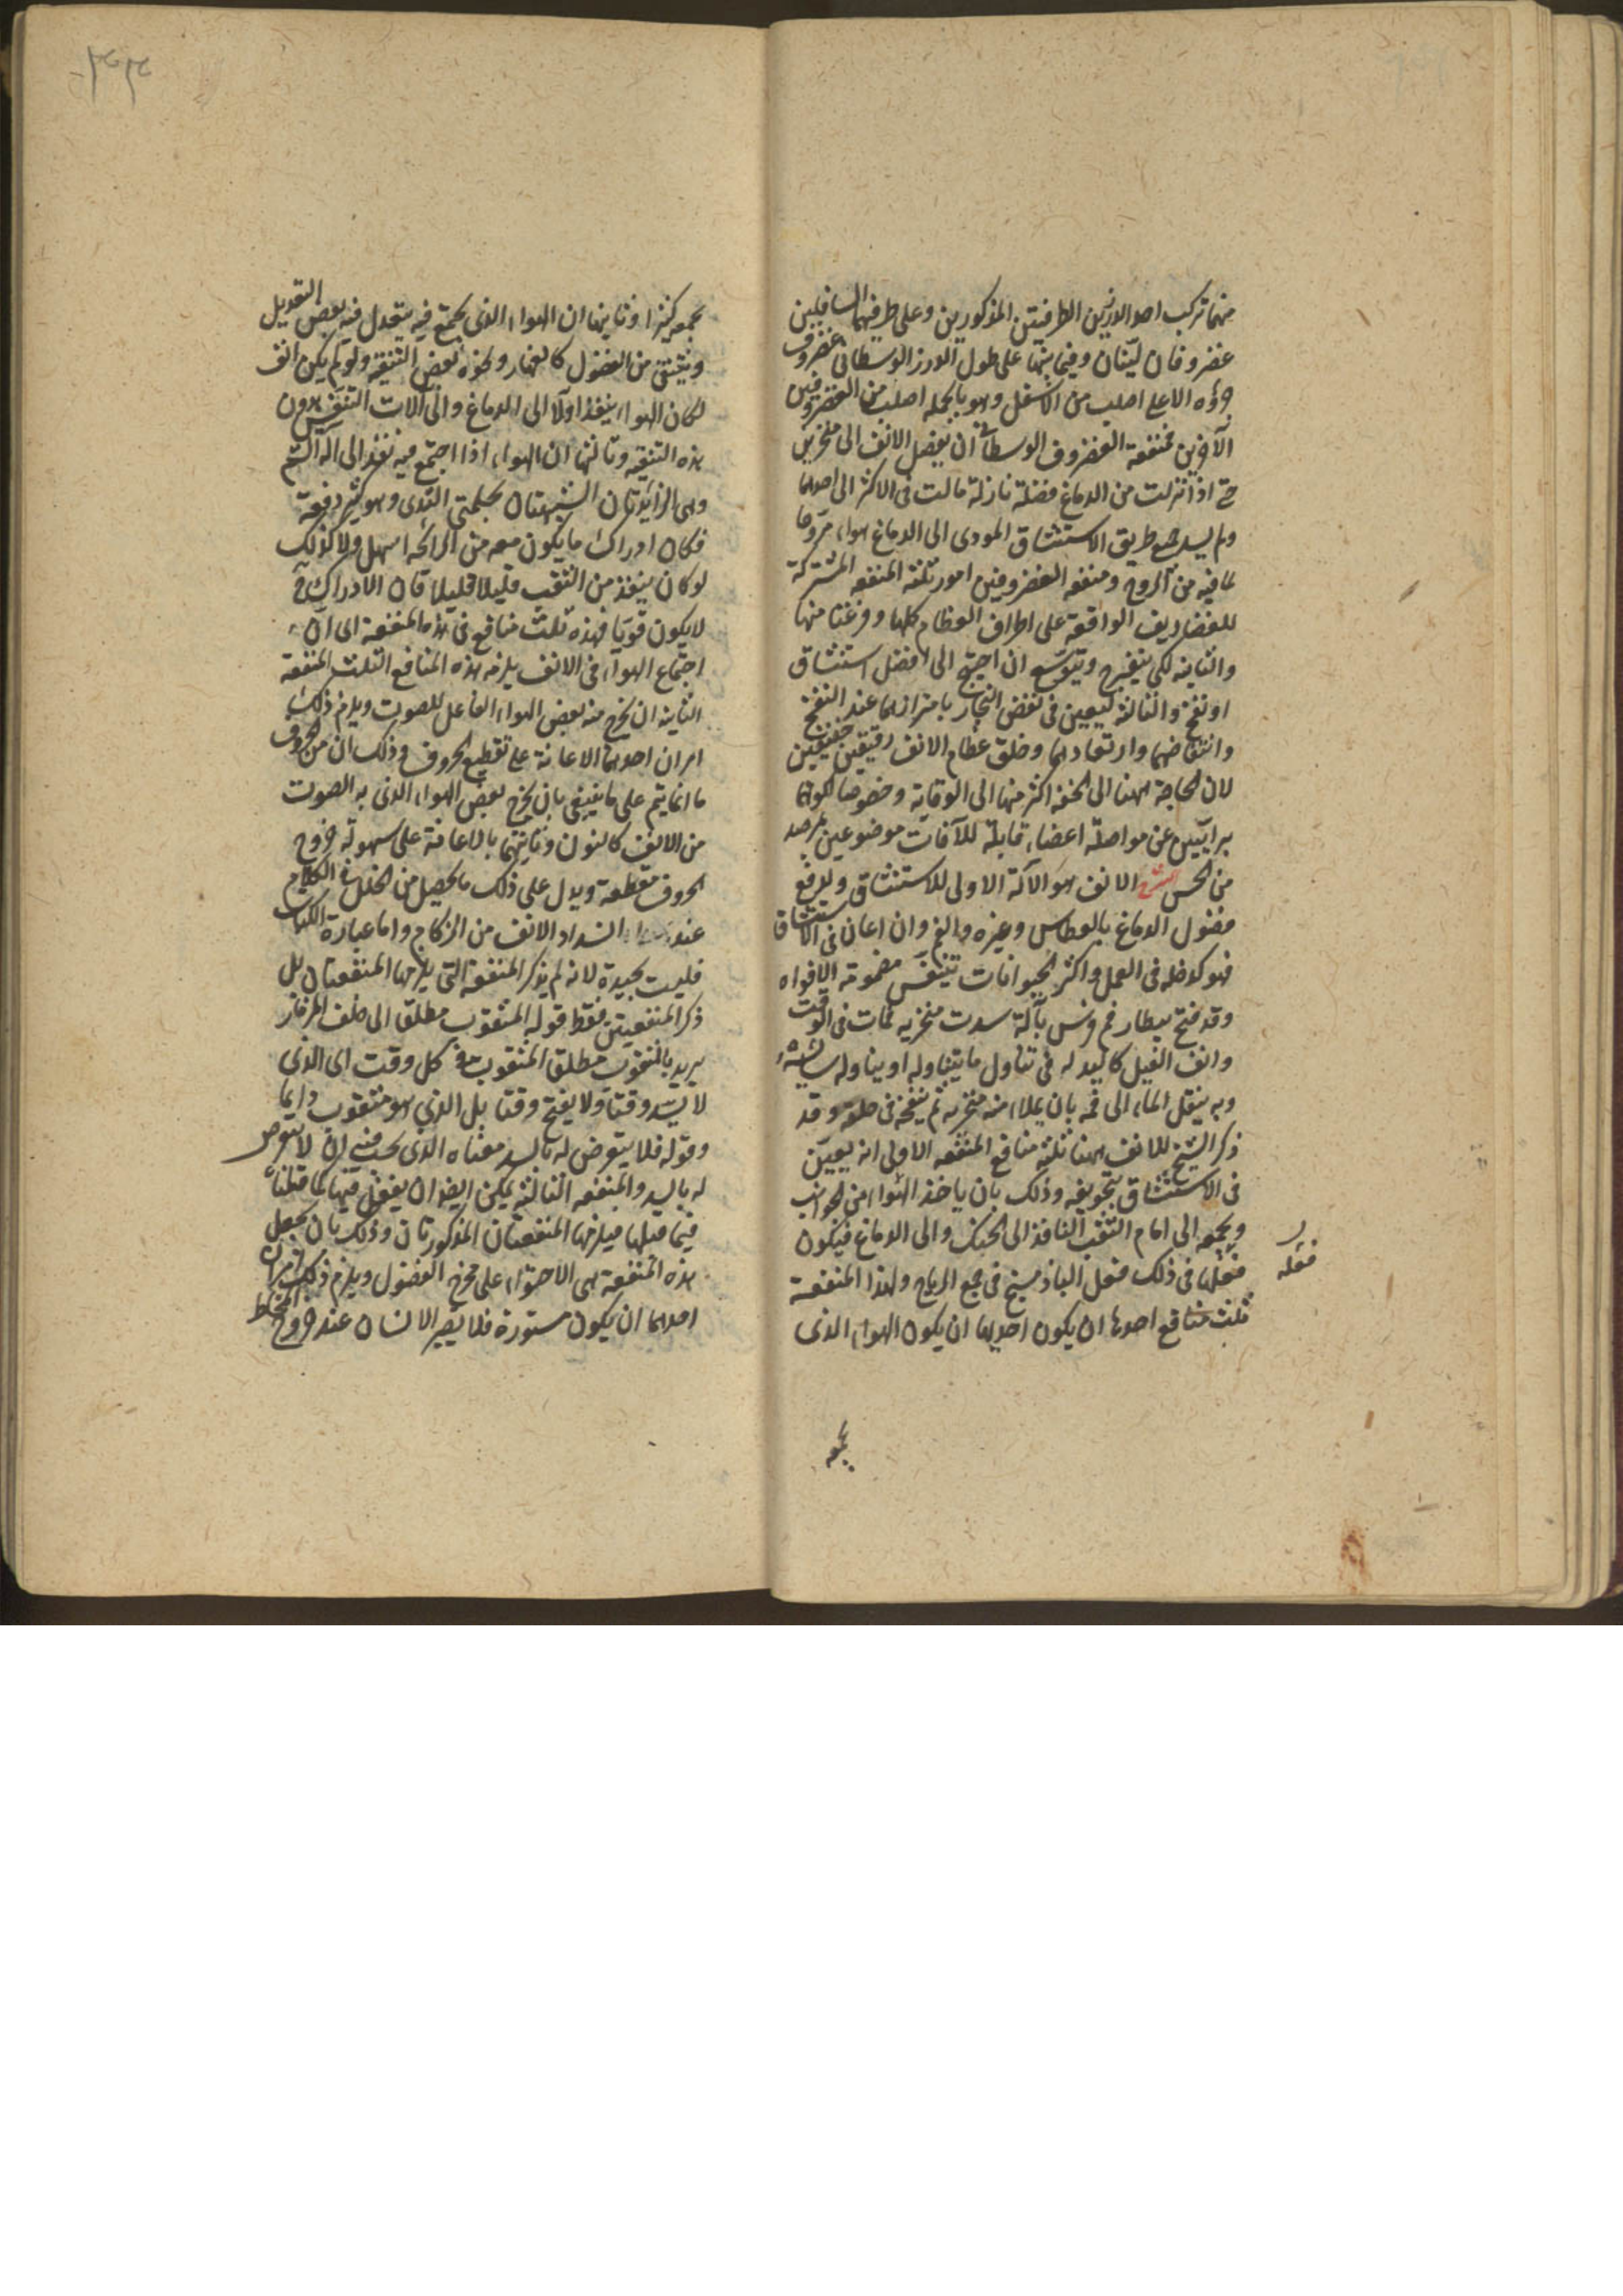 منهما تركب احد الدرزين الطرفيين المذكورين وعلى طرفيهما السافلين
غضروفان لينان وفيما بينهما على طول الدرز الوسطانى غضروف
جزؤه الاعلى اصلب من الاسفل وهو بالجملة اصلب من الغضروفين
الآخرين فمنفعة الغضروف الوسطانى ان يفصل الانف الى منخرين
حتى اذا نزلت من الدماغ فضلة نازلة مالت فى الاكثر الى احدهما
ولم يسد جميع طريق الاستنشاق المودى الى الدماغ هواء مروحا
لما فيه من الروح ومنفعة الغضروفين امور ثلثة المنفعة المشتركة
للغضاريف الواقعة على اطراف العظام كلها وفرغنا منها
والثانية لكى ينفرج ويتوسع ان احتيج الى فضل استنشاق
او نفخ والثالثة ليعين فى نفض البخار باهتزازهما عند النفخ
وانتفاضهما وارتعادهما وخلق عظما الانف رقيقين خفيفين
لان الحاجة ههنا الى الخفة اكثر منها الى الوقاية وخصوصا لكونهما
بريئين عن مواصلة اعضاء قابلة للآفات موضوعين بمرصد
من الحس الشرح الانف هو الآلة الاولى للاستنشاق ولدفع
فضول الدماغ بالعطاس وغيره والفم وان اعان فى الاستنشاق
فهو كدخله فى العمل واكثر الحيوانات تتنفس مضمومة الافواه
وقد فتح بيطار فم فرس بآلة سدت منخريه فمات فى الوقت
وانف الفيل كاليد له فى تناول ما يتناوله او يناوله سائسه
وبه ينقل الماء الى فمه بان يملاء منه منخريه ثم ينفخه فى حلقه وقد
ذكر الشيخ للانف ههنا ثلثة منافع المنفعة الاولى انه يعين
فى الاستنشاق بتجويفه وذلك بان ياخذ الهواء من الجوانب
ويجمعه الى امام الثقب النافذ الى الحنك والى الدماغ فيكون
فعلها فى ذلك فعل الباذهنج فى جمع الرياح ولهذا المنفعة
ثلث منافع احدها ان يكون احديهما ان يكون الهواء الذى
فعله
يجمعه
يجمعه كثيرا وثانيها ان الهواء الذى يجتمع فيه يتعدل فيه بعض التعديل
ويتنقى من الفضول كالغبار ونحوه بعض التنقية ولو لم يكن انف
لكان الهواء ينفذ اولا الى الدماغ والى آلات التنفس بدون
هذه التنقية وثالثها ان الهواء اذا اجتمع فيه نفذ الى آلة الشم
وهى الزائدتان الشبيهتان بحلمتى الثدى وهو كثير دفعة
فكان ادراك ما يكون معه من الرائحة اسهل ولا كذلك
لو كان ينفذ من الثقب قليلا قليلا فان الادراك ح
لا يكون قويا فهذه ثلث منافع فى هذه المنفعة اى ان
اجتماع الهواء فى الانف يلزمه هذه المنافع الثلث المنفعة
الثانية ان يخرج منه بعض الهواء الفاعل للصوت ويلزم ذلك
امران احدهما الاعانة على تقطيع الحروف وذلك ان من الحروف
ما انما يتم على ما ينبغى بان يخرج بعض الهواء الذى به الصوت
من الانف كالنون وثانيتهما بالاعانة على سهولة خروج
الحروف مقطعة ويدل على ذلك ما يحصل من الخلل فى الكلام
عند انسداد الانف من الزكام واما عبارة الكتاب
فليست بجيدة لانه لم يذكر المنفعة التى يلزمها المنفعتان بل
ذكر المنفعتين فقط قوله المثقوب مطلقا الى خلف المزمار
يريد بالمثقوب مطلقا المثقوب فى كل وقت اى الذى
لا يسد وقتا ولا يفتح وقتا بل الذى هو مثقوب دايما
وقوله فلا يتعرض له بالسد معناه الذى يجب فيه ان لا يتعرض
له بالسد والمنفعة الثالثة يمكن ايضا ان يفعل فيها كما قلنا
فيما قبلها فيلزمها المنفعتان المذكورتان وذلك بان يجعل
هذه المنفعة هى الاحتواء على مخرج الفضول ويلزم ذلك امران
احدهما ان يكون مستورة فلا يصير الانسان عند خروج المخاط